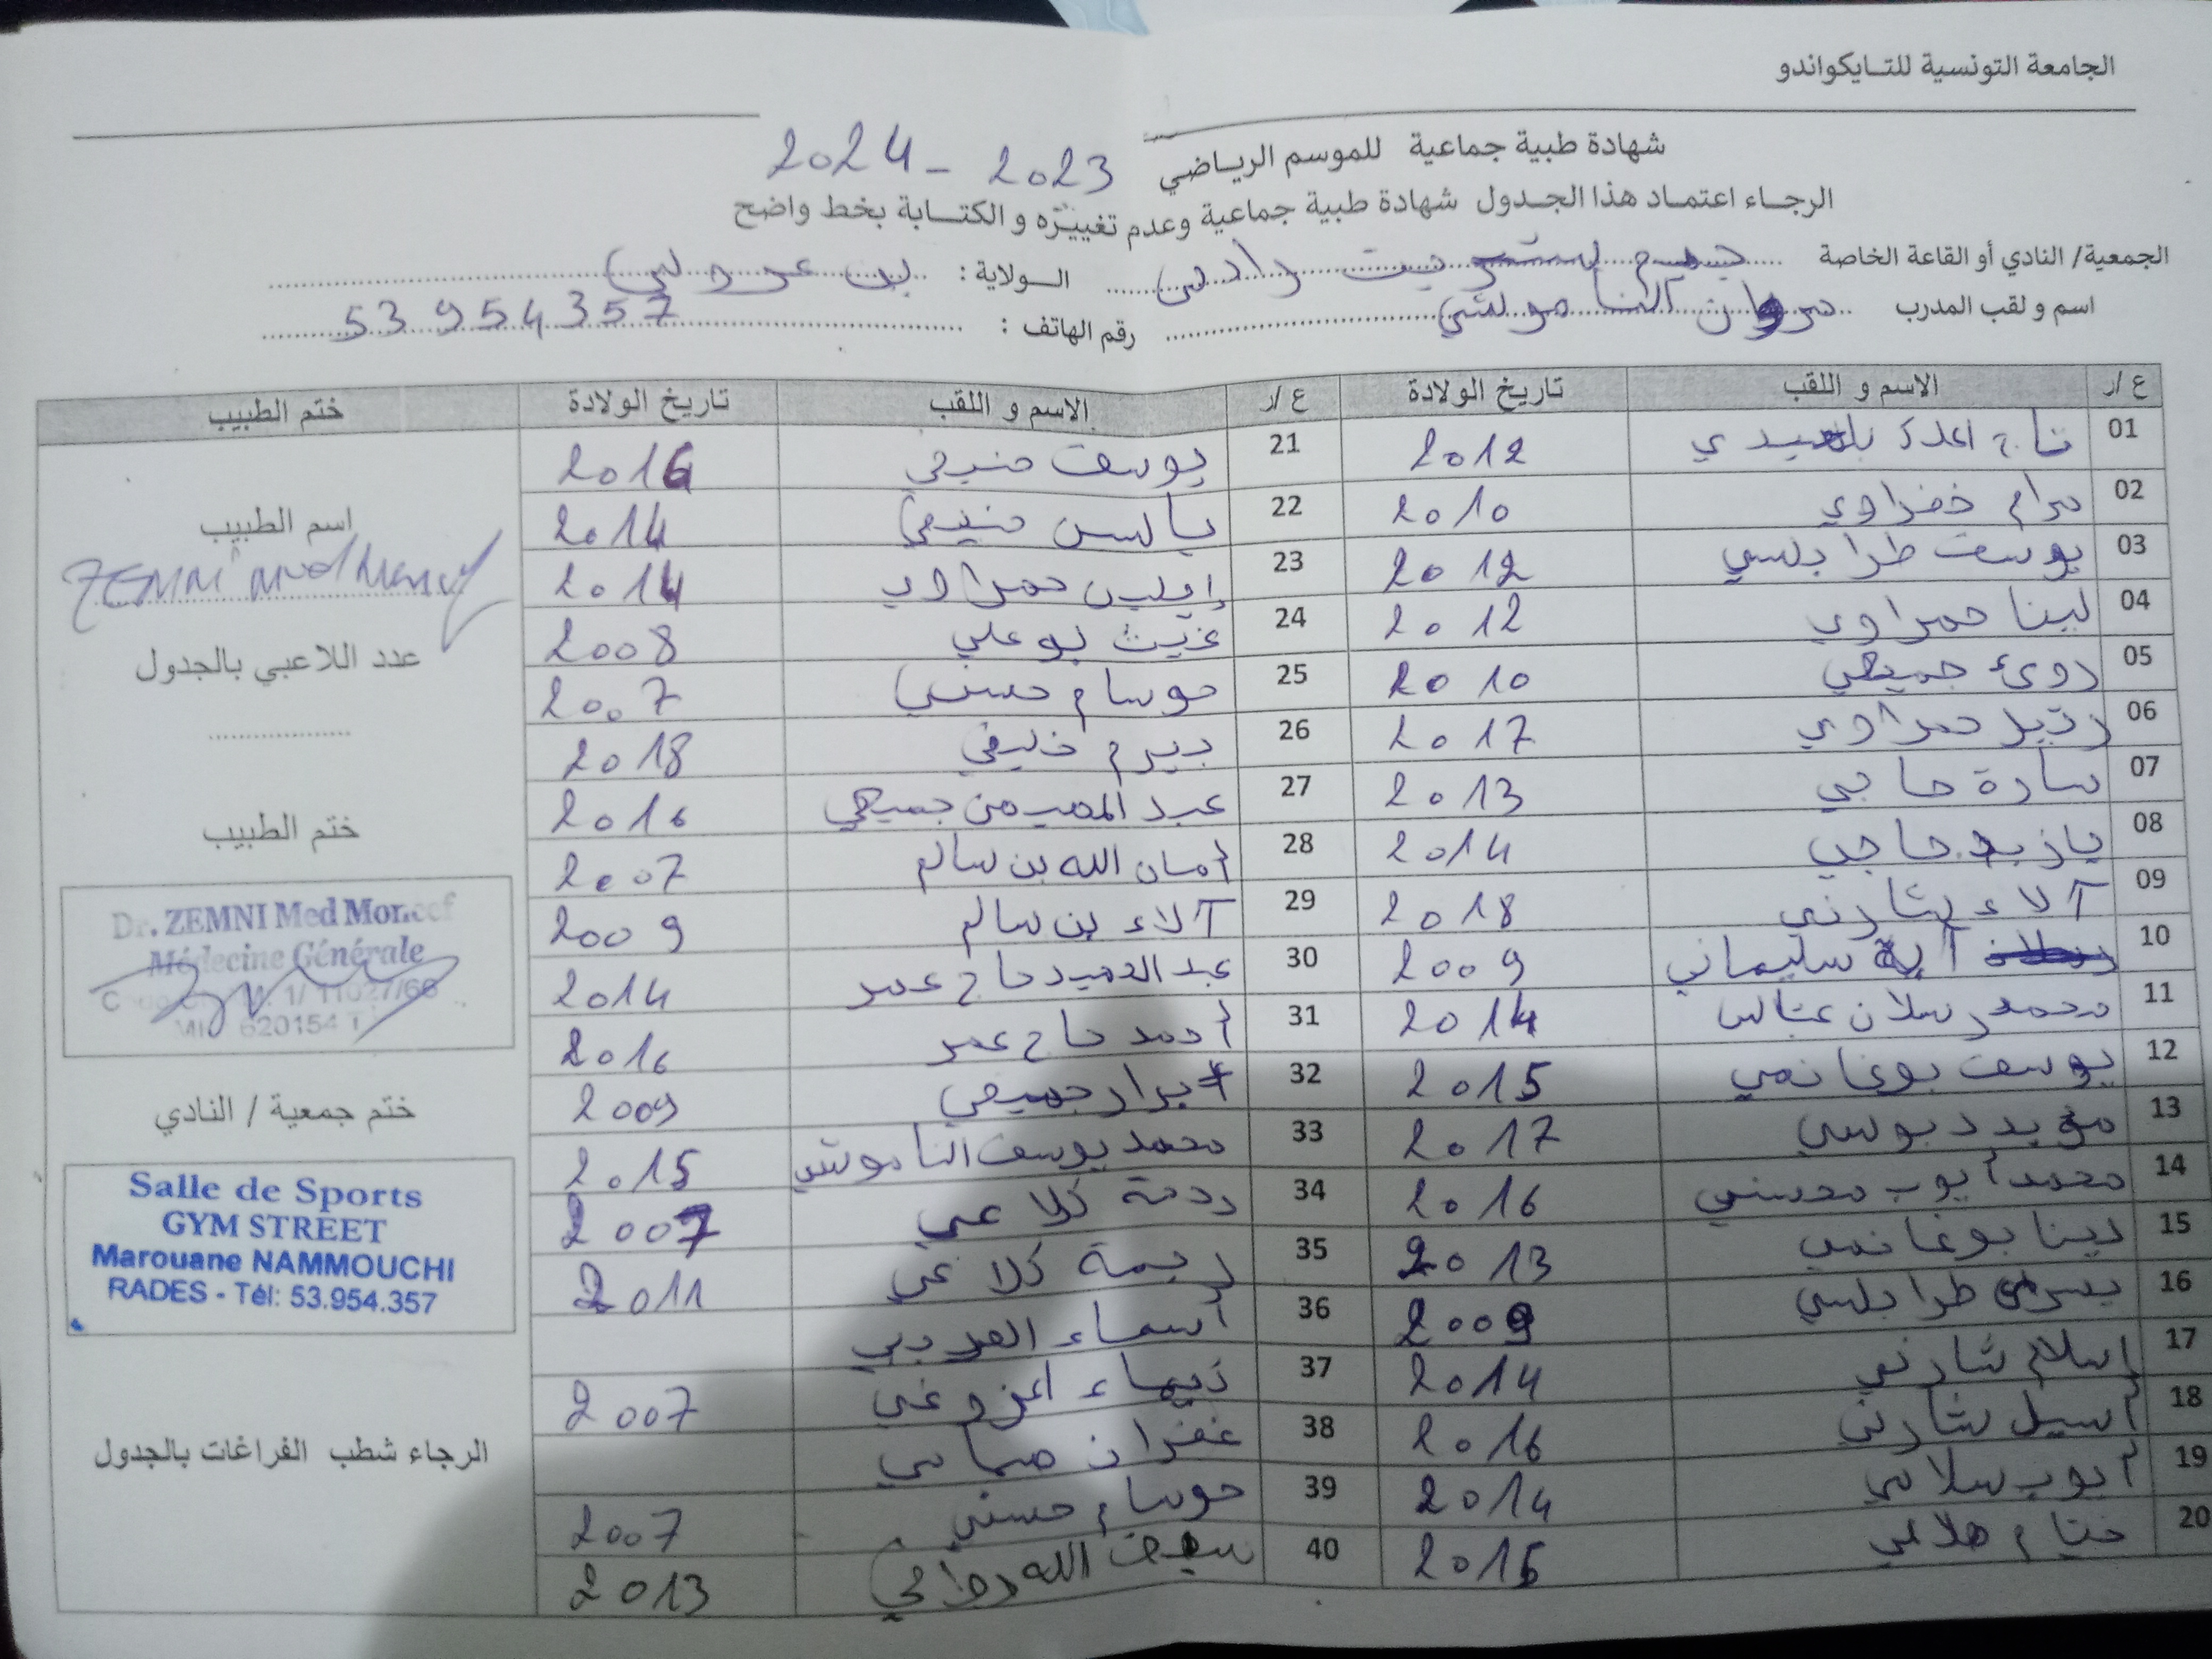 الجامعة التونسية للتايكواندو
شهادة طبية جماعية للموسم الرياضي 2023 - 2024
الرجاء اعتماد هذا الجدول شهادة طبية جماعية وعدم تغييره و الكتابة بخط واضح
الجمعية/ النادي أو القاعة الخاصة جيم ستريت رادس الولاية : بن عروس
اسم و لقب المدرب مروان الناموشي رقم الهاتف : 53 954 357
ع /ر الاسم و اللقب تاريخ الولادة ع /ر الاسم و اللقب تاريخ الولادة ختم الطبيب
01 2012 21 يوسف 2016
02 مرام خضراوي 2010 22 ياسين 2014
03 يوسف طرابلسي 2012 23 إيلين حمراوي 2014
04 لينا حمراوي 2012 24 غيث بوعلي 2008
05 جميعي 2010 25 حوسام حسني 2007
06 حمراوي 2017 26 بيرم خليفي 2018
07 سارة حاجي 2013 27 عبد المهيمن جميعي 2016
08 يازيد حاجي 2014 28 أمان الله بن سالم 2007
09 آلاء شارني 2018 29 آلاء بن سالم 2009
10 آية سليماني 2009 30 عبد الحميد حاج عمر 2014
11 محمد رسلان عباس 2014 31 أحمد حاج عمر 2016
12 يوسف بوغانمي 2015 32 أبرار جميعي 2009
13 مؤيد دبوسي 2017 33 محمد يوسف الناموشي 2015
14 محمد أيوب محسني 2016 34 رحمة كلاعي 2007
15 دينا بوغانمي 2013 35 ريمة كلاعي 2011
16 يسرى طرابلسي 2009 36 أسماء
17 إسلام شارني 2014 37 2007
18 أسيل شارني 2016 38 غفران
19 أيوب سلامي 2014 39 حوسام حسني 2007
20 ختام 2015 40 سيف الله 2013
اسم الطبيب
ZEMNI
عدد اللاعبي بالجدول
ختم الطبيب
Dr. ZEMNI Med Moncef
Médecine Générale
ختم جمعية / النادي
Salle de Sports
GYM STREET
Marouane NAMMOUCHI
RADES - Tél: 53.954.357
الرجاء شطب الفراغات بالجدول